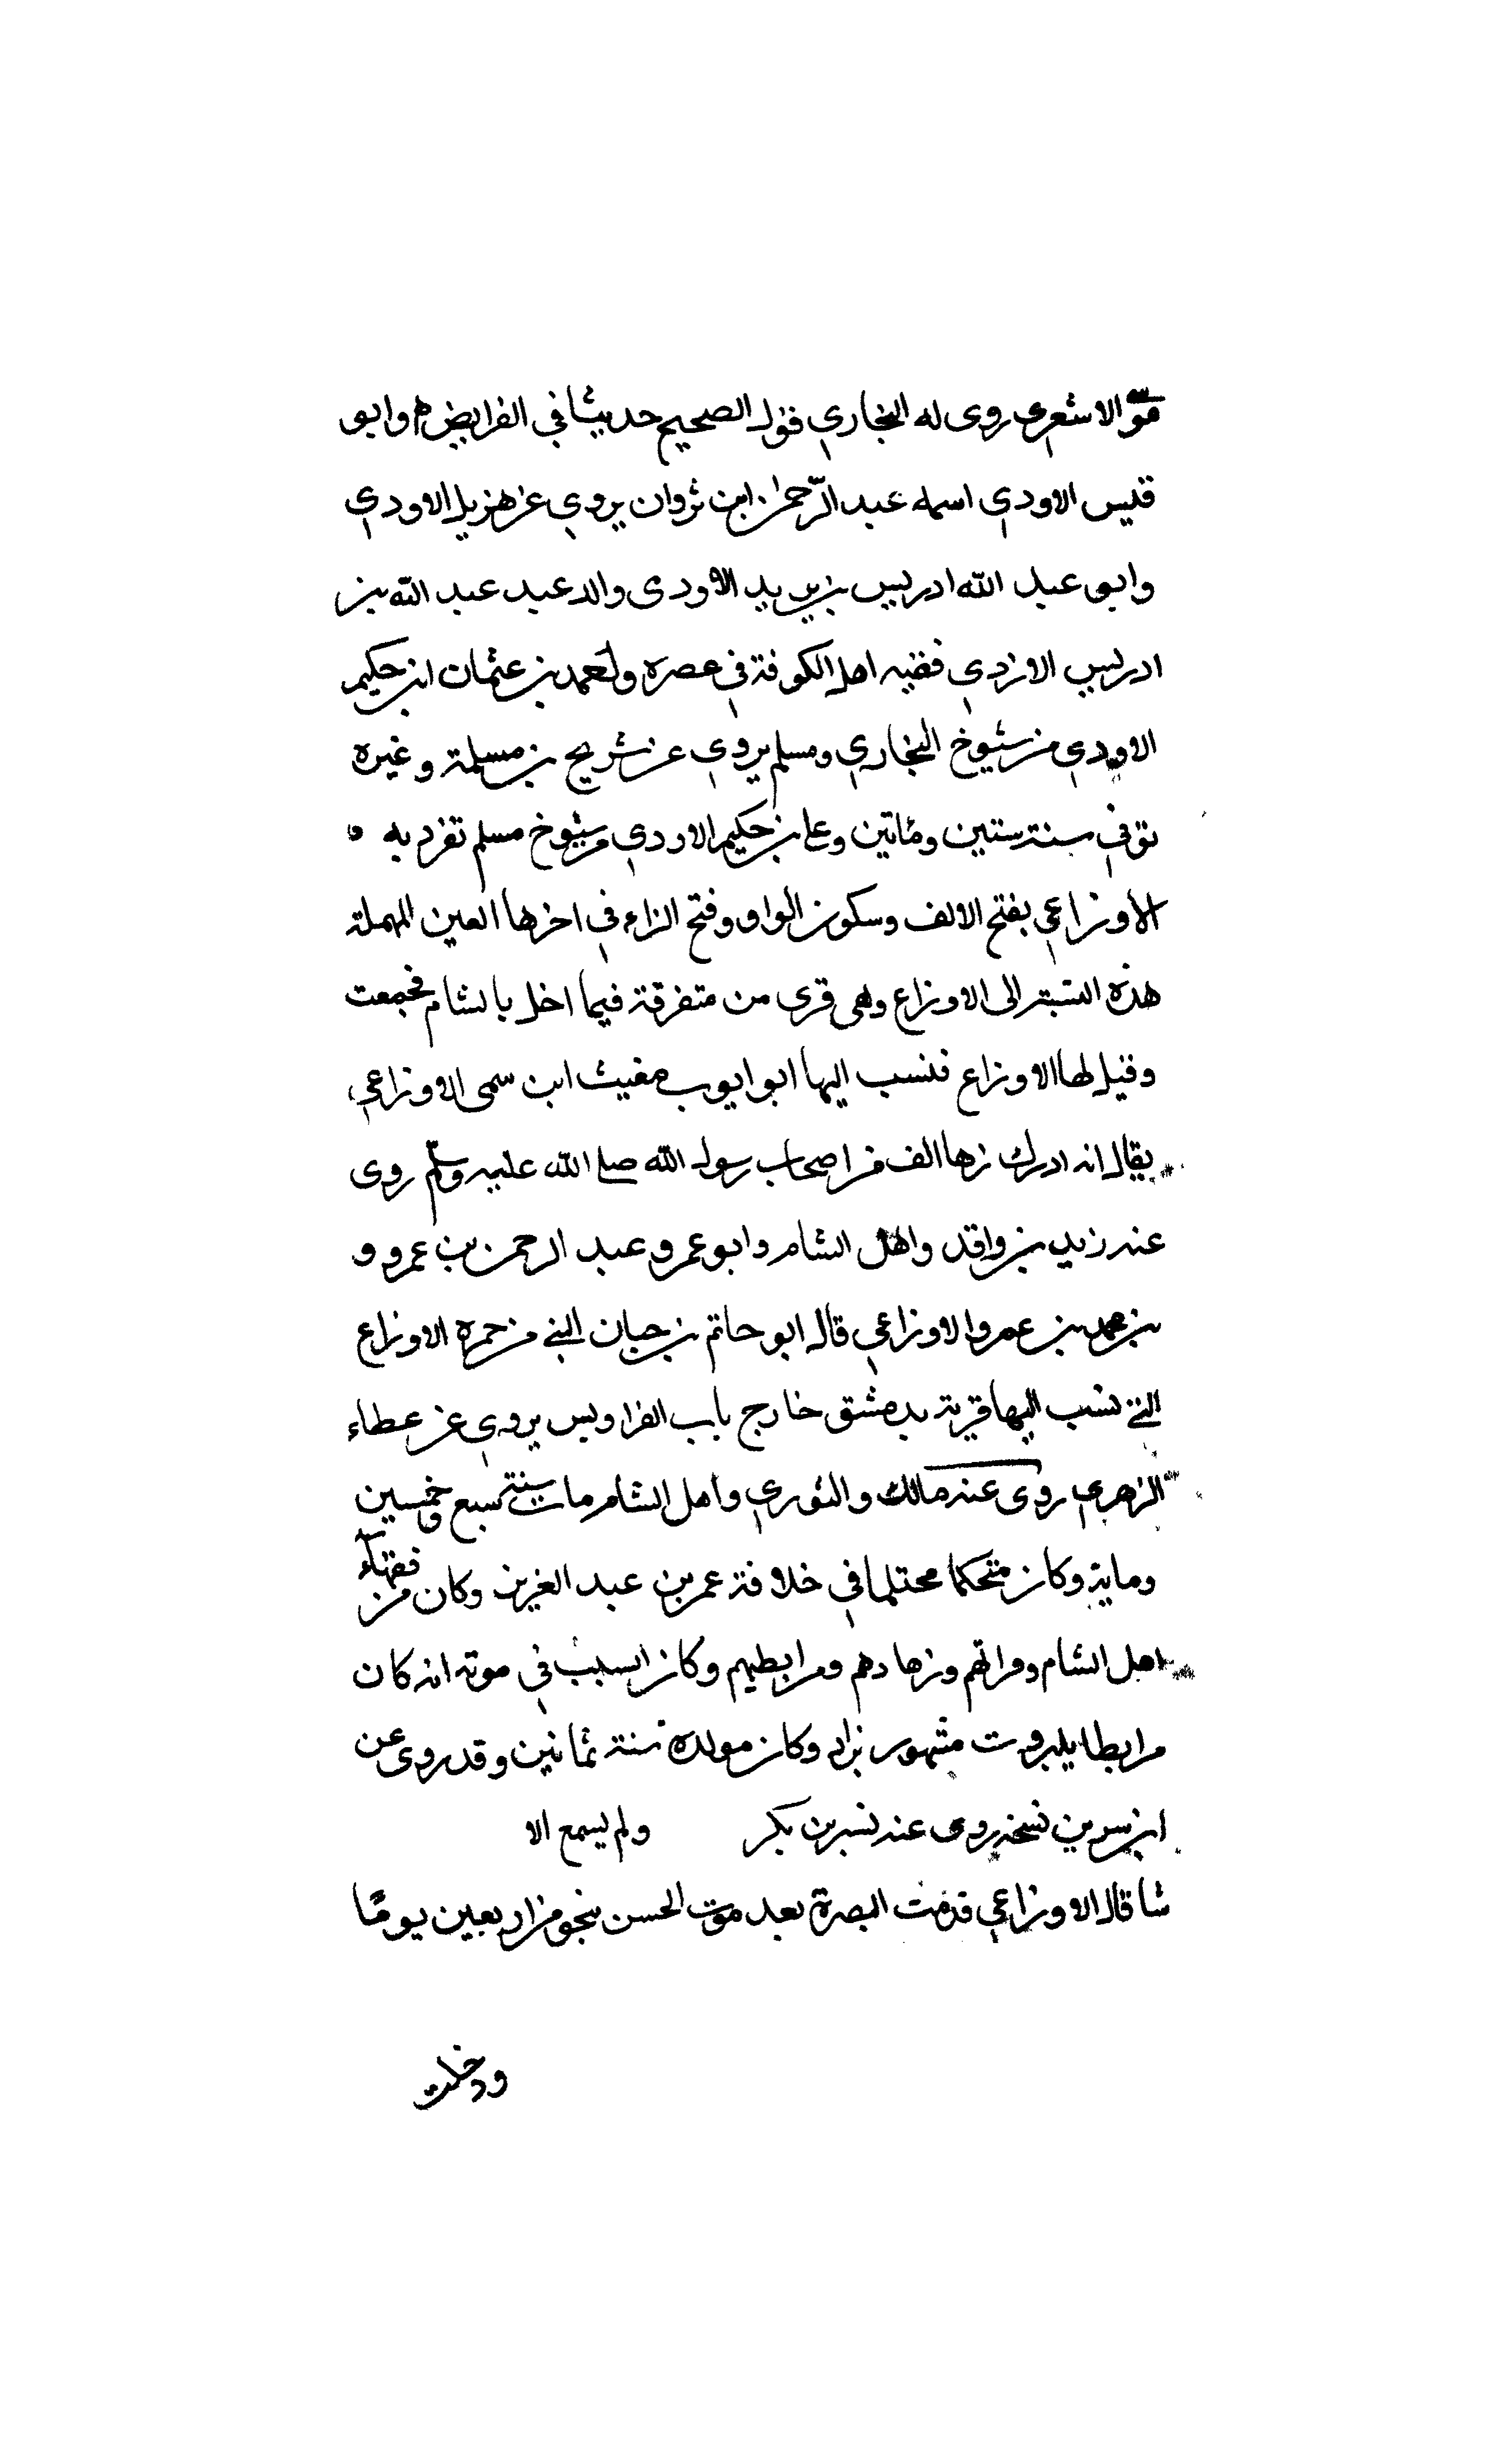 موسى الاشعرى روى له البخاري فى الصحيح حديثا في الفرايض وابو
قيس الاودي اسمه عبد الرحمن ابن ثروان يروي عن هزيل الاودي
وابو عبد الله ادريس بن يزيد الاودى والد عبد عبد الله بن
ادريس الازدي فقيه اهل الكوفة في عصره واحمد بن عثمان ابن حكيم
الاودي من شيوخ البخاري ومسلم يروي عن شريح بن مسلمة وغيره
توفي سنة ستين ومأتين وعلي بن حكيم الاودي من شيوخ مسلم تفرد به
الاوزاعي بفتح الالف وسكون الواو وفتح الزاء في اخرها العين المهملة
هذه النسبة الى الاوزاع وهى قرى من متفرقة فيما اخل بالشام فجمعت
وقيل لها الاوزاع فنسب اليها ابو ايوب مغيث ابن سمى الاوزاعي
يقال انه ادرك زها الف من اصحاب رسول الله صلى الله عليه وسلم روى
عنه زيد بن واقد واهل الشام وابو عمرو عبد الرحمن بن عمرو و
بن محمد بن عمرو الاوزاعي قال ابو حاتم بن حبان من حمره الاوزاع
التي نسب اليها قرية بدمشق خارج باب الفراديس يروي عن عطاء
الزهري روى عنه مالك والثوري واهل الشام مات سنة سبع وخمسين
وماية وكان محتلما في خلافة عمر بن عبد العزيز وكان من فقهاء
اهل الشام وقرائهم وزهادهم ومرابطيهم وكان السبب في موته انه كان
مرابطا ببيروت مشهور وكان مولده سنة ثمانين وقد روى عن
ابن سيرين نسخة روى عنه بشر بن بكر ولم يسمع الا
شا قال الاوزاعي قدمت البصرة بعد موت الحسن بنحو من اربعين يومًا
ودخلت